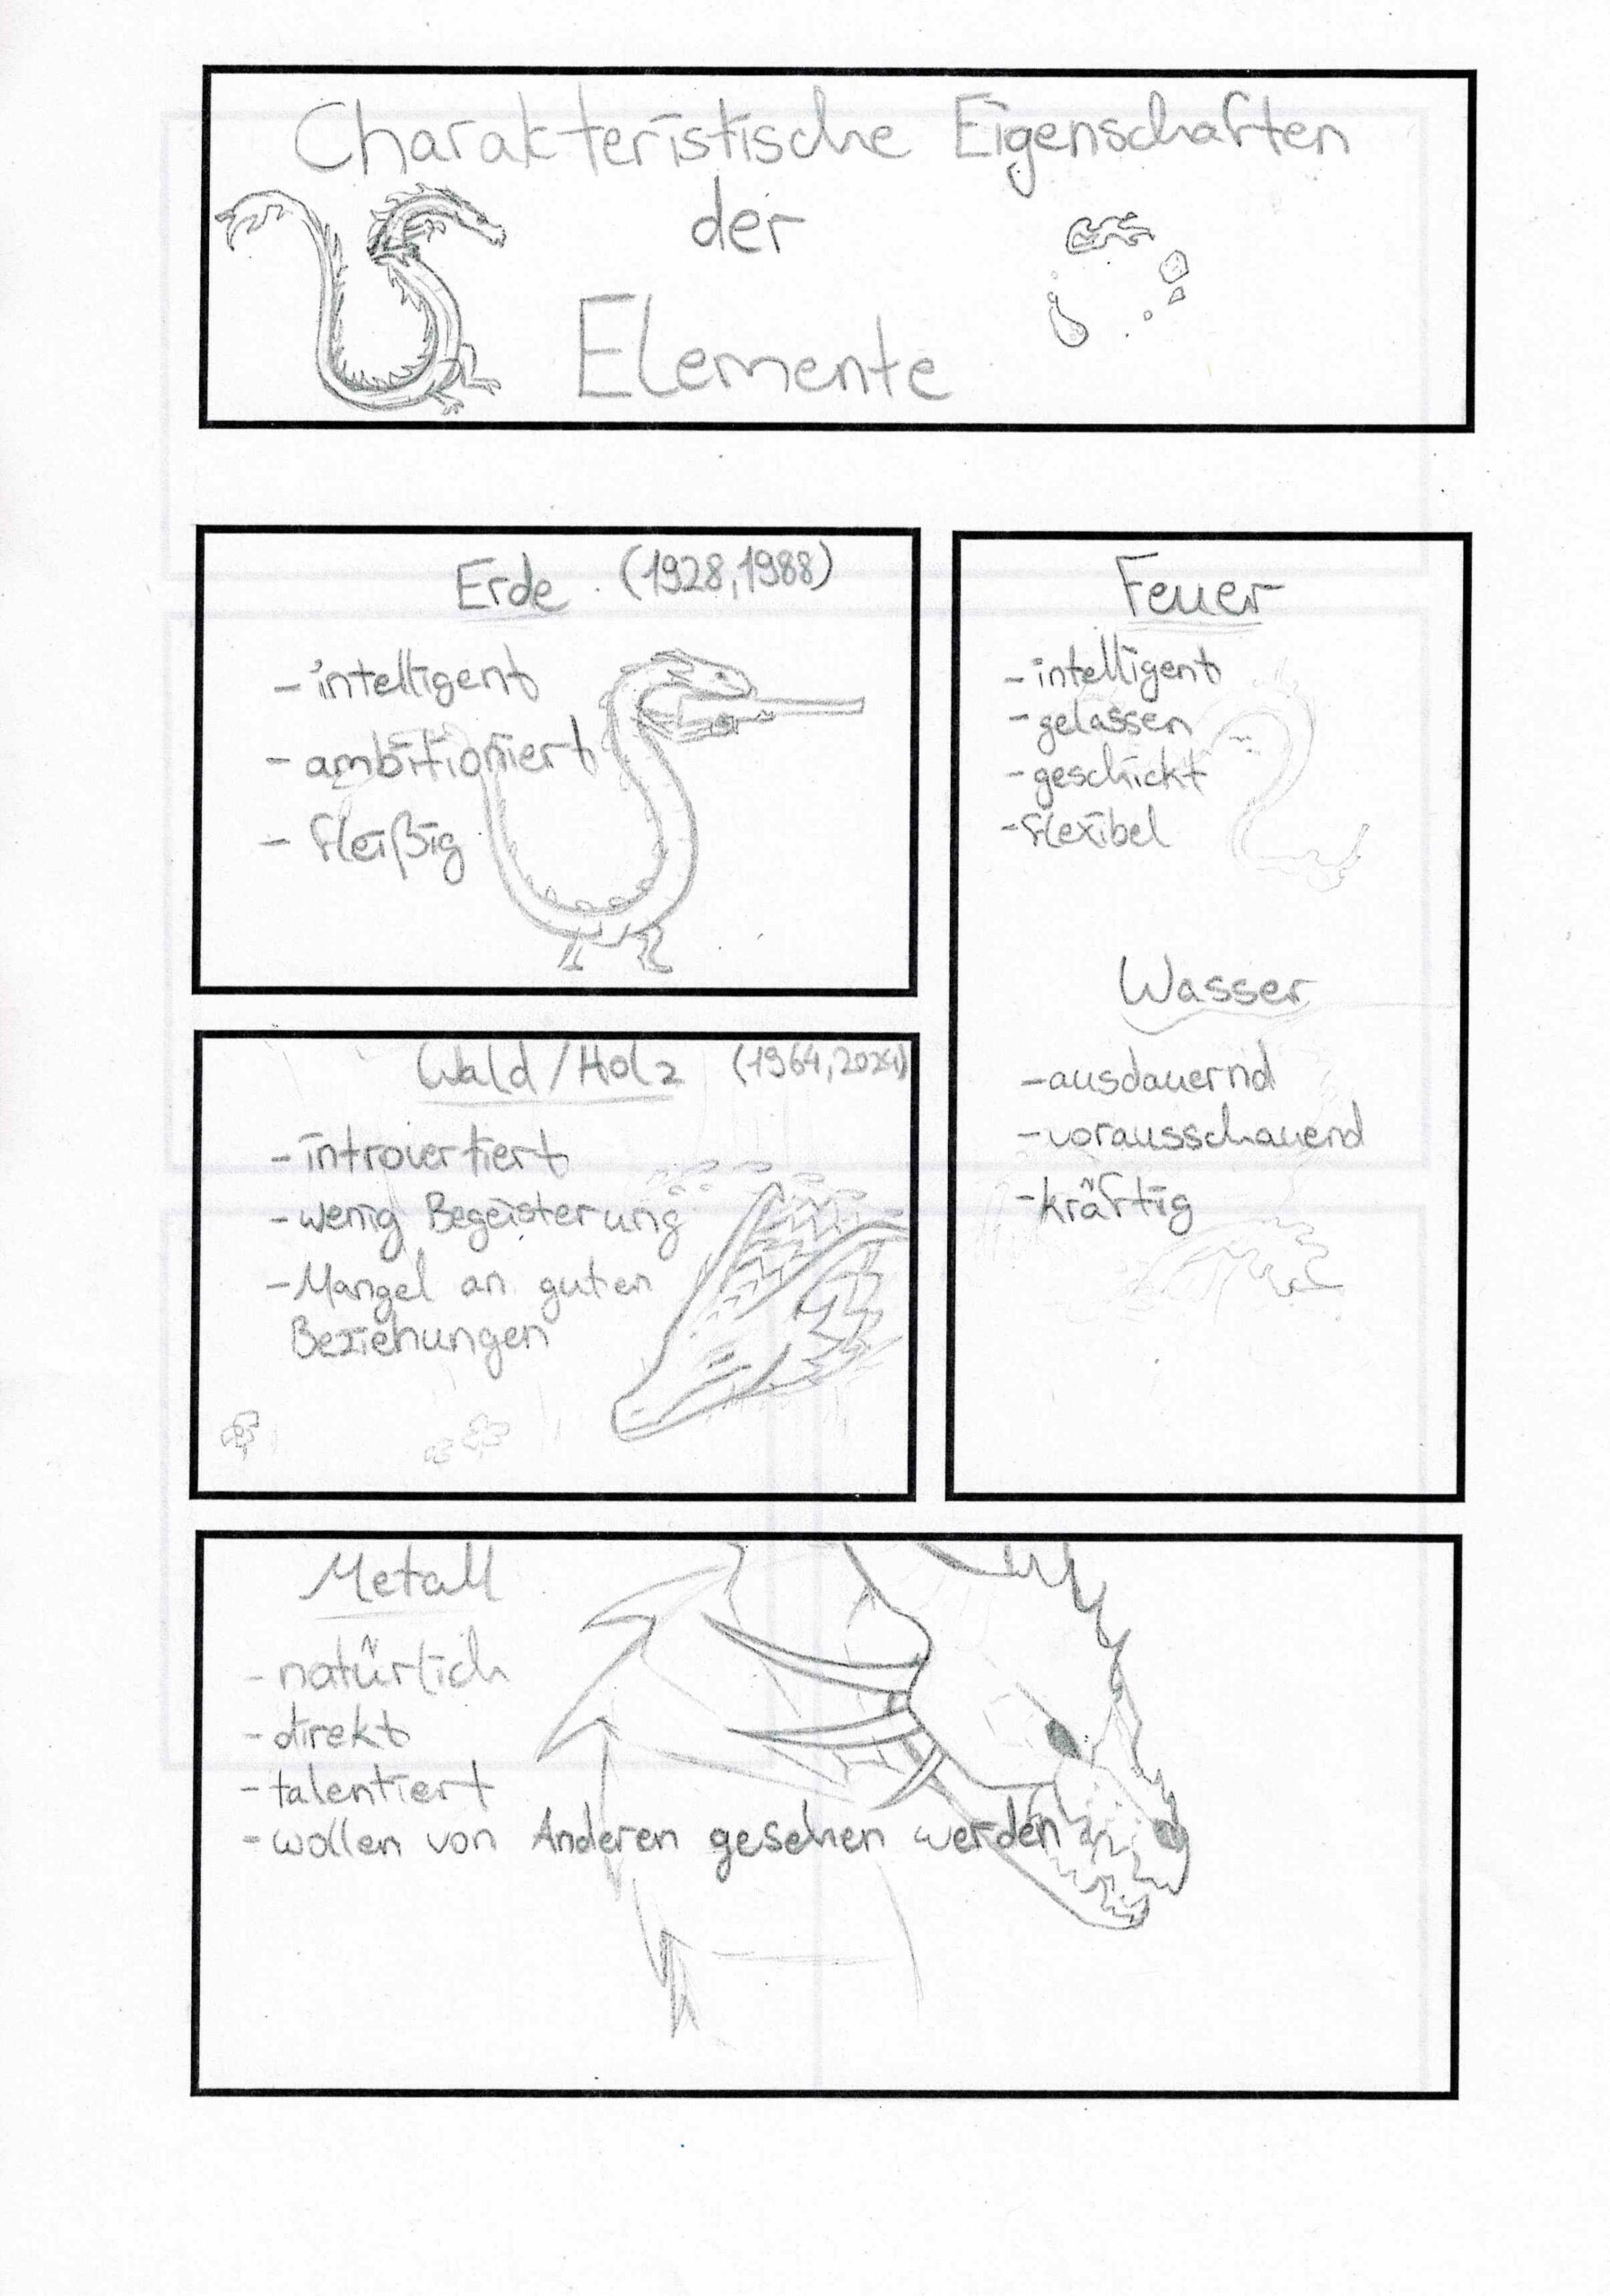 Charakteristische Eigenschaften
der
Elemente
Erde (1928,1988)
- intelligent
- ambitioniert
- fleißig
Feuer
- intelligent
- gelassen
- geschickt
- flexibel
Wasser
- ausdauernd
- vorausschauend
- kräftig
Wald/Holz (1964,2024)
- introvertiert
- wenig Begeisterung
- Mangel an guten
Beziehungen
Metall
- natürlich
- direkt
- talentiert
- wollen von Anderen gesehen werden